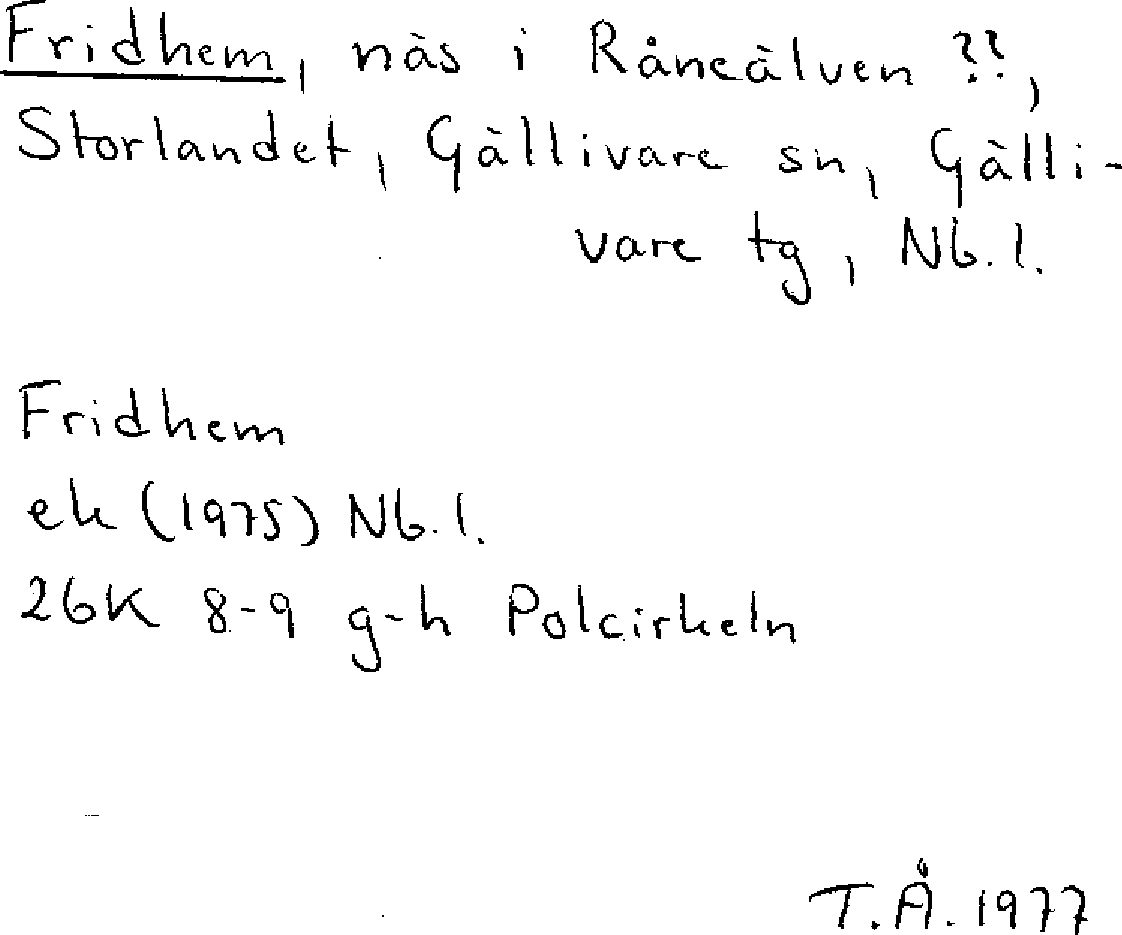 Fridhem, näs i Råneälven ??,
Storlandet, Gällivare sn, Gälli-
vare tg, Nb. l.
Fridhem
ek (1975) Nb. l.
26K 8-9 g-h Polcirkeln
T.Å. 1977